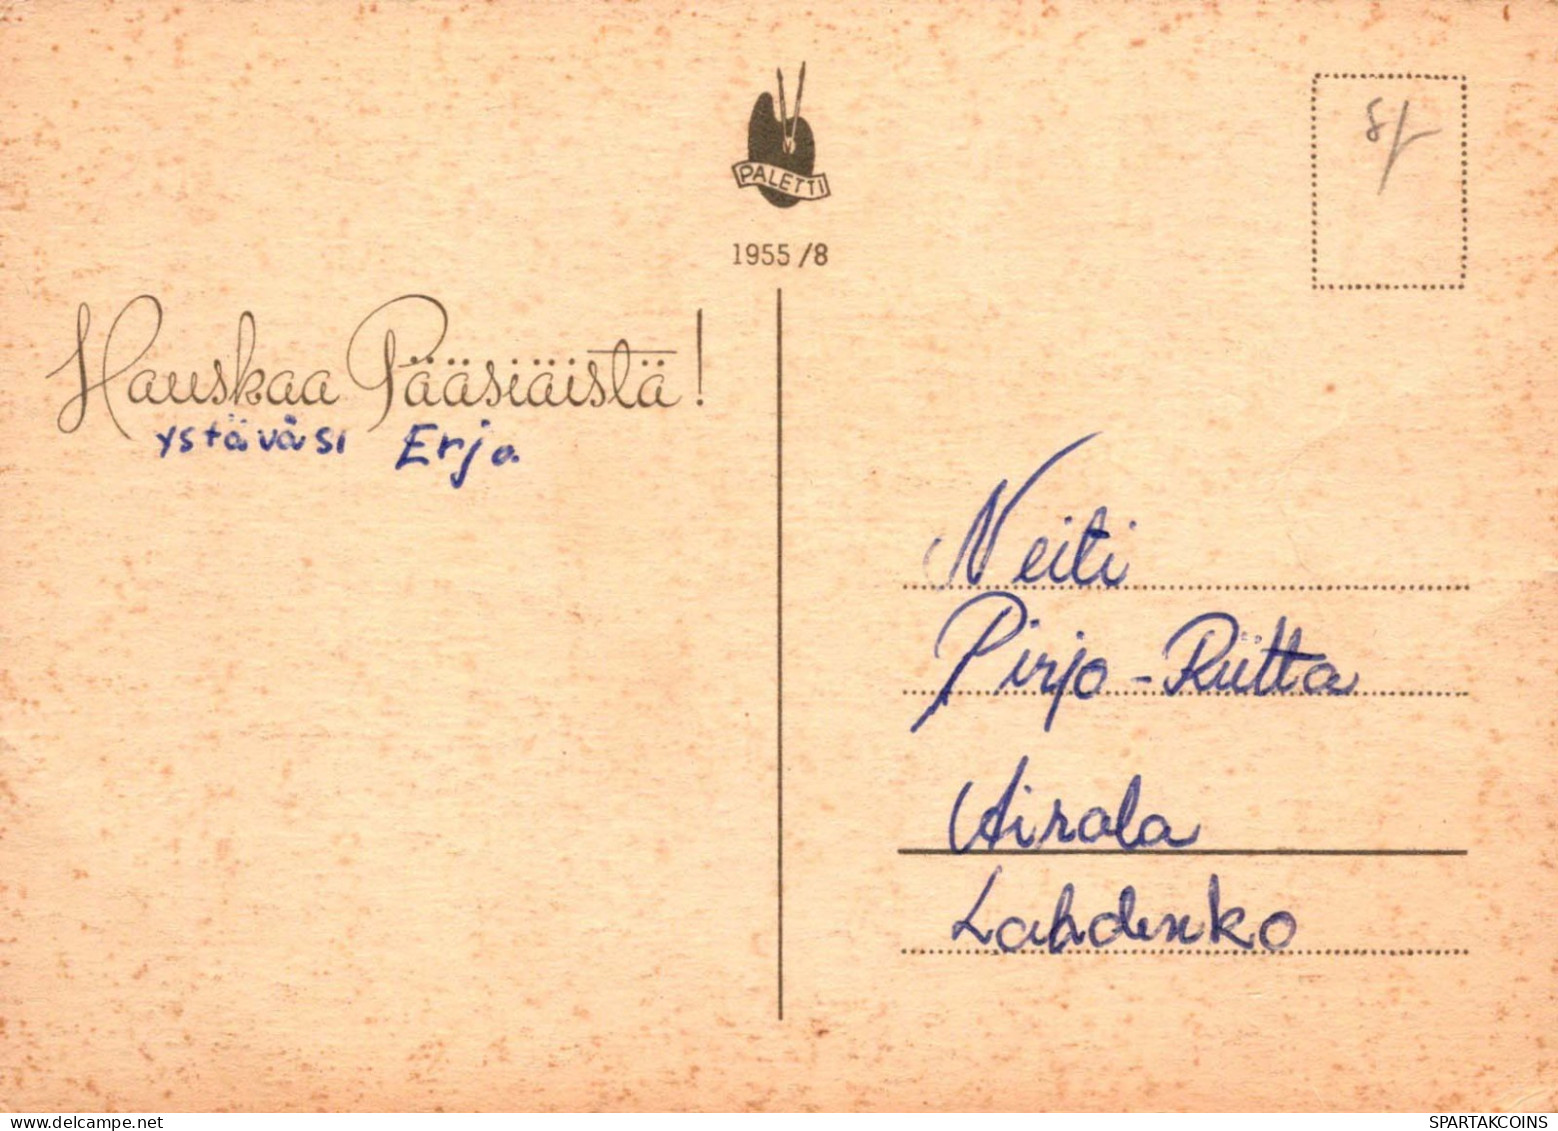 PALETTI
1955/8
Hauskaa Pääsiäistä!
ystäväsi Erja
Neiti
Pirjo-Riitta
Airala
Lahdenko
SPARTAKCOINS